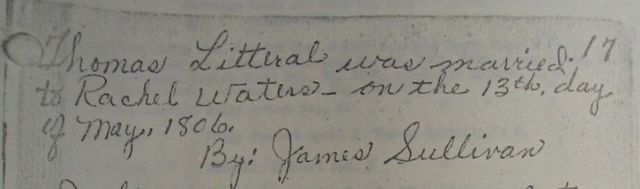 Thomas Litteral was married. 17
to Rachel Waters - on the 13th. day
of May, 1806.
By: James Sullivan